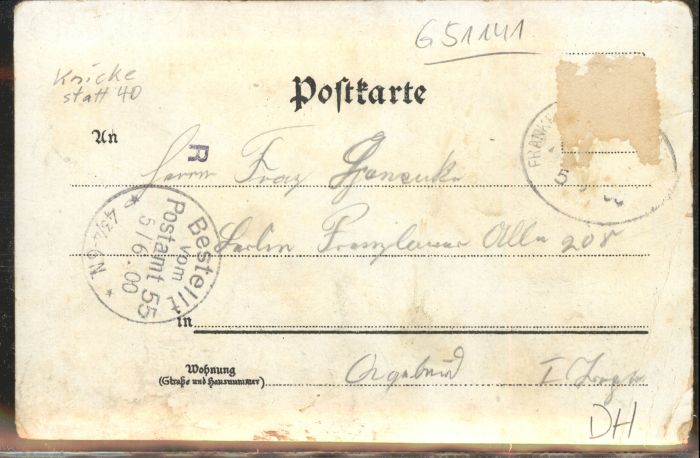 G51141
Knicke
statt 40
Postkarte
An
R
Herrn Franz
FRANK
5
Berlin Prenzlauer Allee 208
Bestellt
vom
Postamt 55
5/6.00
43/4-6N
in
Wohnung
(Straße und Hausnummer)
I
DH